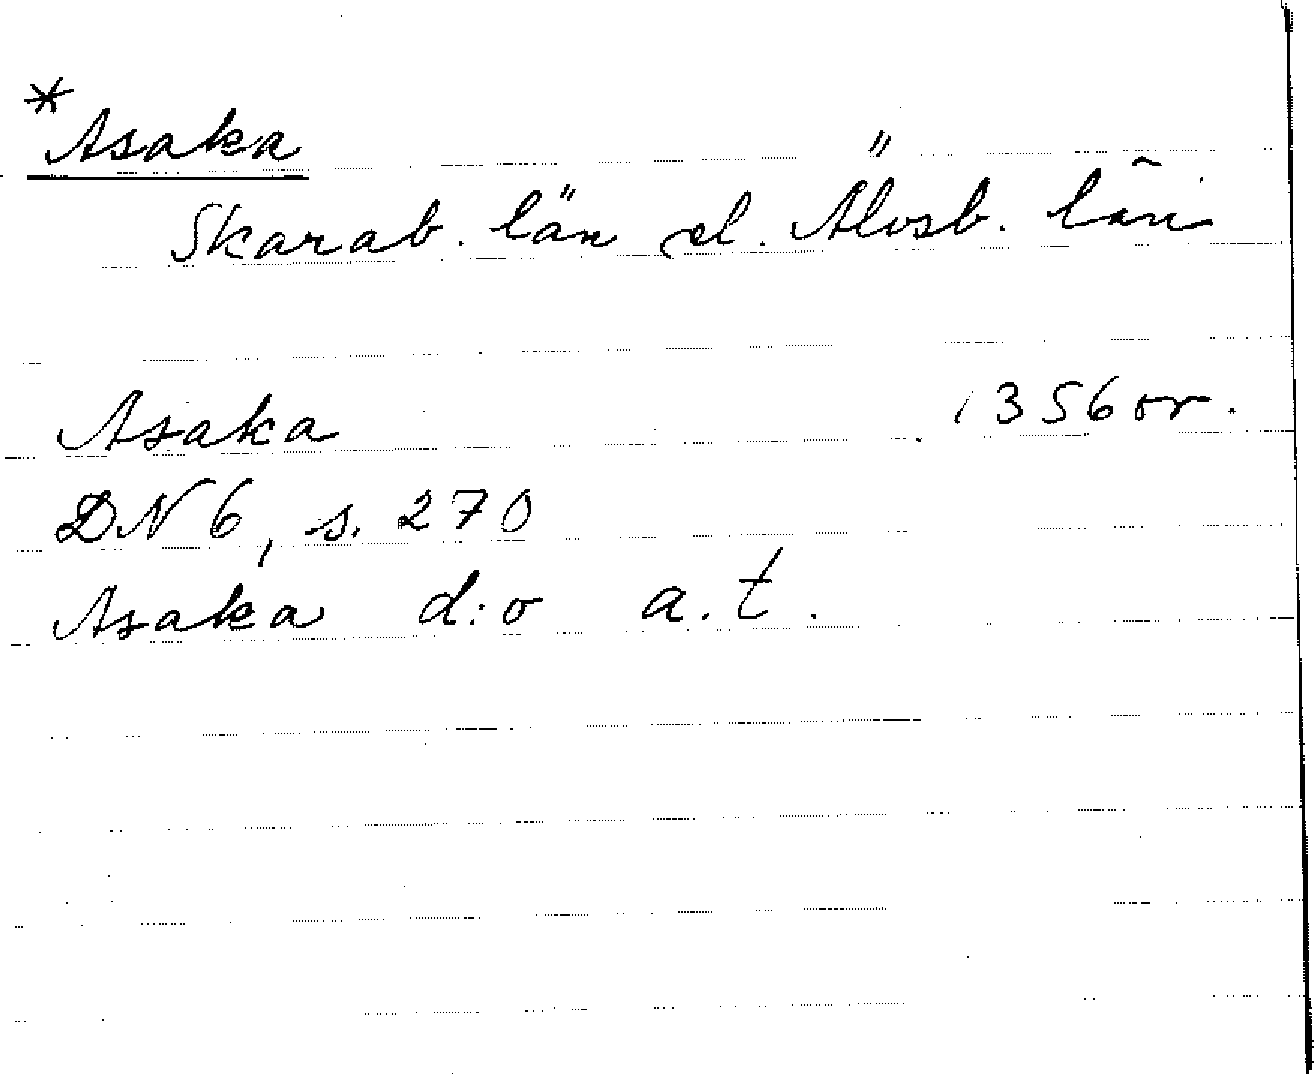 *Asaka
Skarab. län el. Älvsb. län
Asaka 1356 or.
DN 6, s. 270
Asaka d:o a. t.